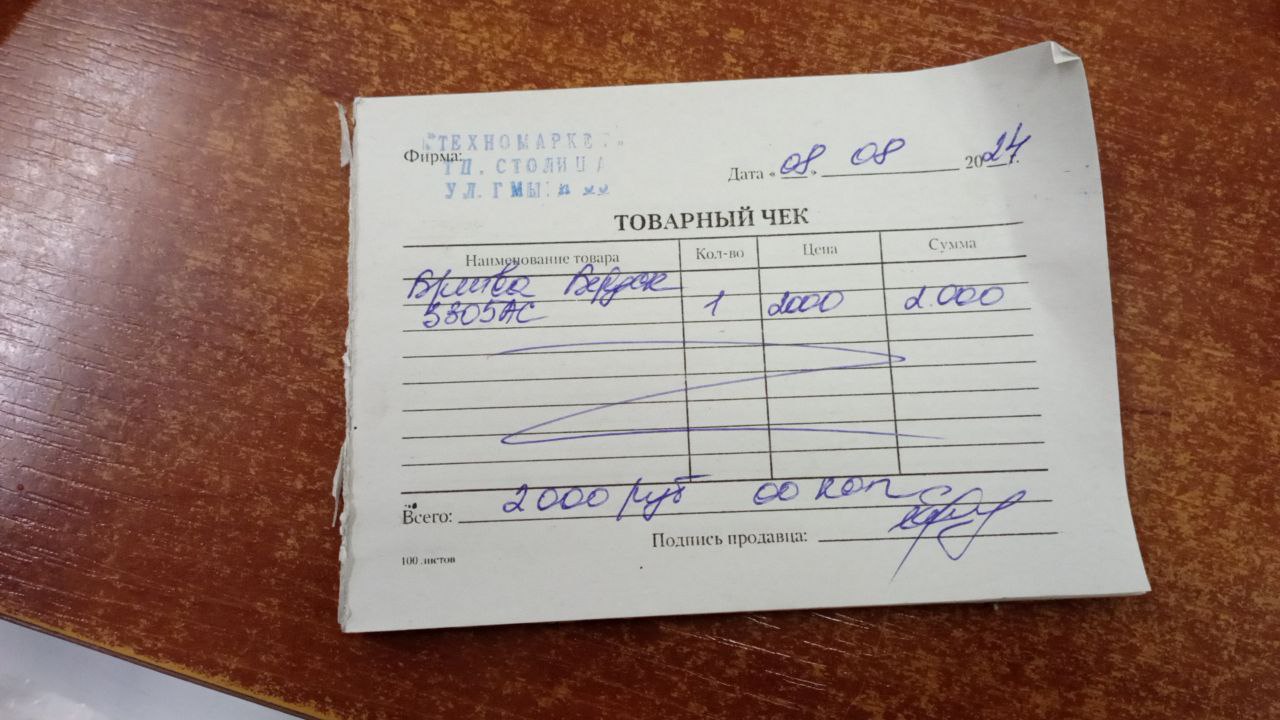 Фирма: "ТЕХНОМАРКЕТ"
ТЦ. СТОЛИЦА
УЛ.
Дата «08» 08 2024г.
ТОВАРНЫЙ ЧЕК
Наименование товара Кол-во Цена Сумма
Бритва Бердск
3305АС 1 2000 2.000
Всего: 2000 руб 00 коп
Подпись продавца:
100 листов